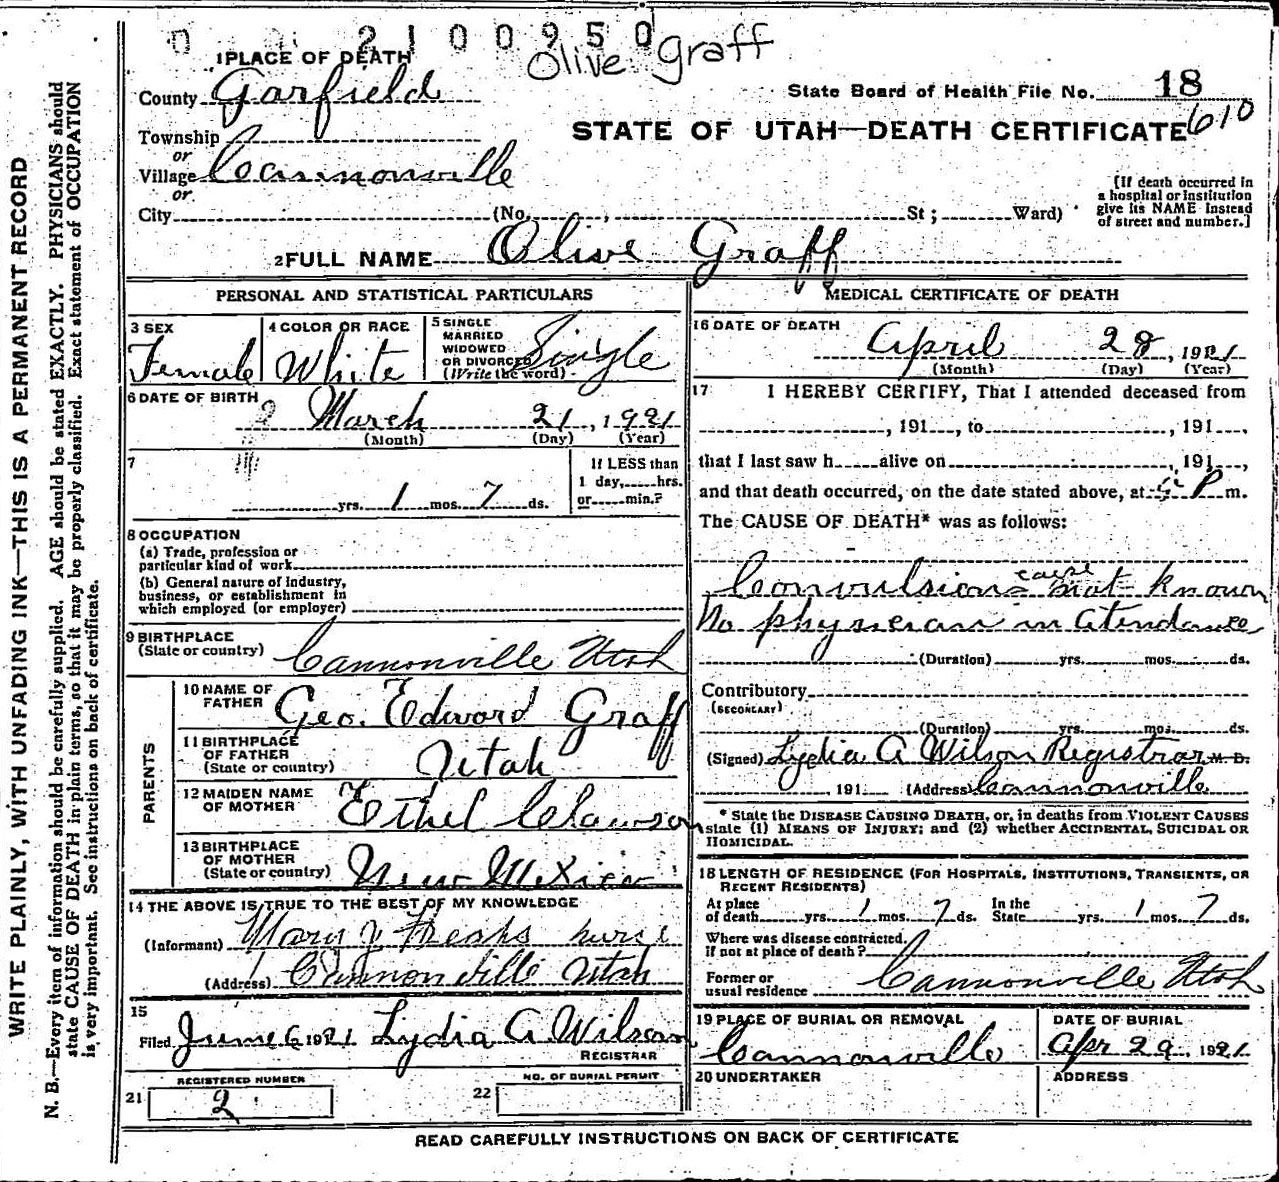 2100950
Olive Graff
1 PLACE OF DEATH
County Garfield
State Board of Health File No. 18
610
STATE OF UTAH—DEATH CERTIFICATE
Township
or
Village Cannonville
or
City (No. , St; Ward)
[If death occurred in
a hospital or institution
give its NAME instead
of street and number.]
2 FULL NAME Olive Graff
PERSONAL AND STATISTICAL PARTICULARS
3 SEX
Female
4 COLOR OR RACE
White
5 SINGLE
MARRIED
WIDOWED
OR DIVORCED
(Write the word)
Single
6 DATE OF BIRTH
March 21, 1921
(Month) (Day) (Year)
7
yrs. 1 mos. 7 ds.
If LESS than
1 day, hrs.
or min.?
8 OCCUPATION
(a) Trade, profession or
particular kind of work
(b) General nature of industry,
business, or establishment in
which employed (or employer)
9 BIRTHPLACE
(State or country) Cannonville Utah
PARENTS
10 NAME OF
FATHER Geo. Edward Graff
11 BIRTHPLACE
OF FATHER
(State or country) Utah
12 MAIDEN NAME
OF MOTHER Ethel Clawson
13 BIRTHPLACE
OF MOTHER
(State or country) New Mexico
14 THE ABOVE IS TRUE TO THE BEST OF MY KNOWLEDGE
(Informant) Mary J nurse
(Address) Cannonville Utah
15
Filed June 6 1921 Lydia A Wilson
REGISTRAR
REGISTERED NUMBER
21 2
NO. OF BURIAL PERMIT
22
MEDICAL CERTIFICATE OF DEATH
16 DATE OF DEATH
April 28, 1921
(Month) (Day) (Year)
17 I HEREBY CERTIFY, That I attended deceased from
, 191 , to , 191 ,
that I last saw h alive on , 191 ,
and that death occurred, on the date stated above, at P m.
The CAUSE OF DEATH* was as follows:
Convulsions cause not known
No physician in Atendance
(Duration) yrs. mos. ds.
Contributory
(SECONDARY)
(Duration) yrs. mos. ds.
(Signed) Lydia A Wilson Registrar M. D.
, 191 (Address) Cannonville
* State the DISEASE CAUSING DEATH, or, in deaths from VIOLENT CAUSES
state (1) MEANS OF INJURY; and (2) whether ACCIDENTAL, SUICIDAL OR
HOMICIDAL.
18 LENGTH OF RESIDENCE (FOR HOSPITALS, INSTITUTIONS, TRANSIENTS, OR
RECENT RESIDENTS)
At place
of death yrs. 1 mos. 7 ds. In the
State yrs. 1 mos. 7 ds.
Where was disease contracted,
if not at place of death?
Former or
usual residence Cannonville Utah
19 PLACE OF BURIAL OR REMOVAL
Cannonville
DATE OF BURIAL
Apr 29, 1921
20 UNDERTAKER
ADDRESS
READ CAREFULLY INSTRUCTIONS ON BACK OF CERTIFICATE
WRITE PLAINLY, WITH UNFADING INK—THIS IS A PERMANENT RECORD
N. B.—Every item of information should be carefully supplied. AGE should be stated EXACTLY. PHYSICIANS should
state CAUSE OF DEATH in plain terms, so that it may be properly classified. Exact statement of OCCUPATION
is very important. See instructions on back of certificate.